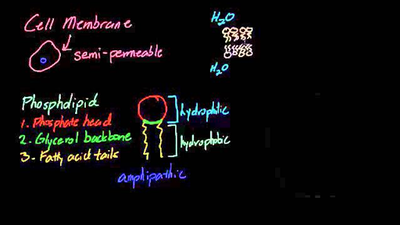 Cell Membrane
semi-permeable
H2O
H2O
Phospholipid
1. Phosphate head
2. Glycerol backbone
3. Fatty acid tails
hydrophilic
hydrophobic
amphipathic